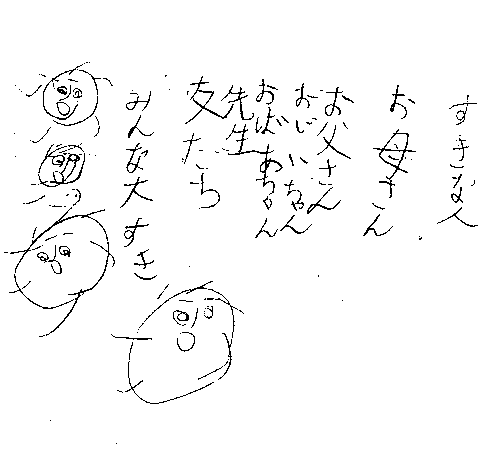 すきな人
お母さん
お父さん
おじいちゃん
おばあちゃん
先生
友だち
みんな大すき